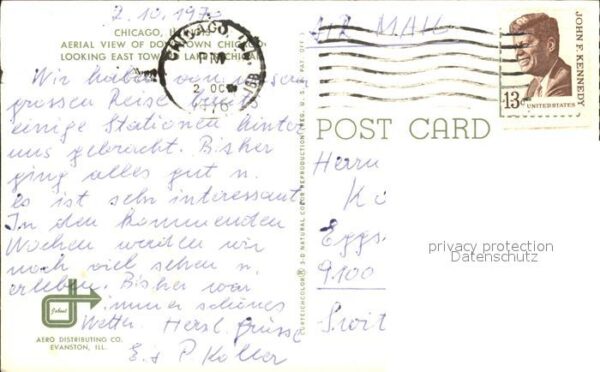 2.10.1970
CHICAGO, ILLINOIS
AERIAL VIEW OF DOWNTOWN CHICAGO
LOOKING EAST TOWARD LAKE MICHIGAN
Wir haben von unserer
grossen Reise bereits
einige Stationen hinter
uns gebracht. Bisher
ging alles gut u.
es ist sehr interessant.
In den kommenden
Wochen werden wir
noch viel sehen u.
erleben. Bisher war
immer schönes
Wetter. Herzl. Grüsse
E. + P. Koller
AERO DISTRIBUTING CO.
EVANSTON, ILL.
CHICAGO, ILL.
PM
2 OCT
3-D NATURAL COLOR REPRODUCTION
AIR MAIL
JOHN F. KENNEDY
13c
UNITED STATES
POST CARD
Herrn
Kö
Eggs
9100
privacy protection
Datenschutz